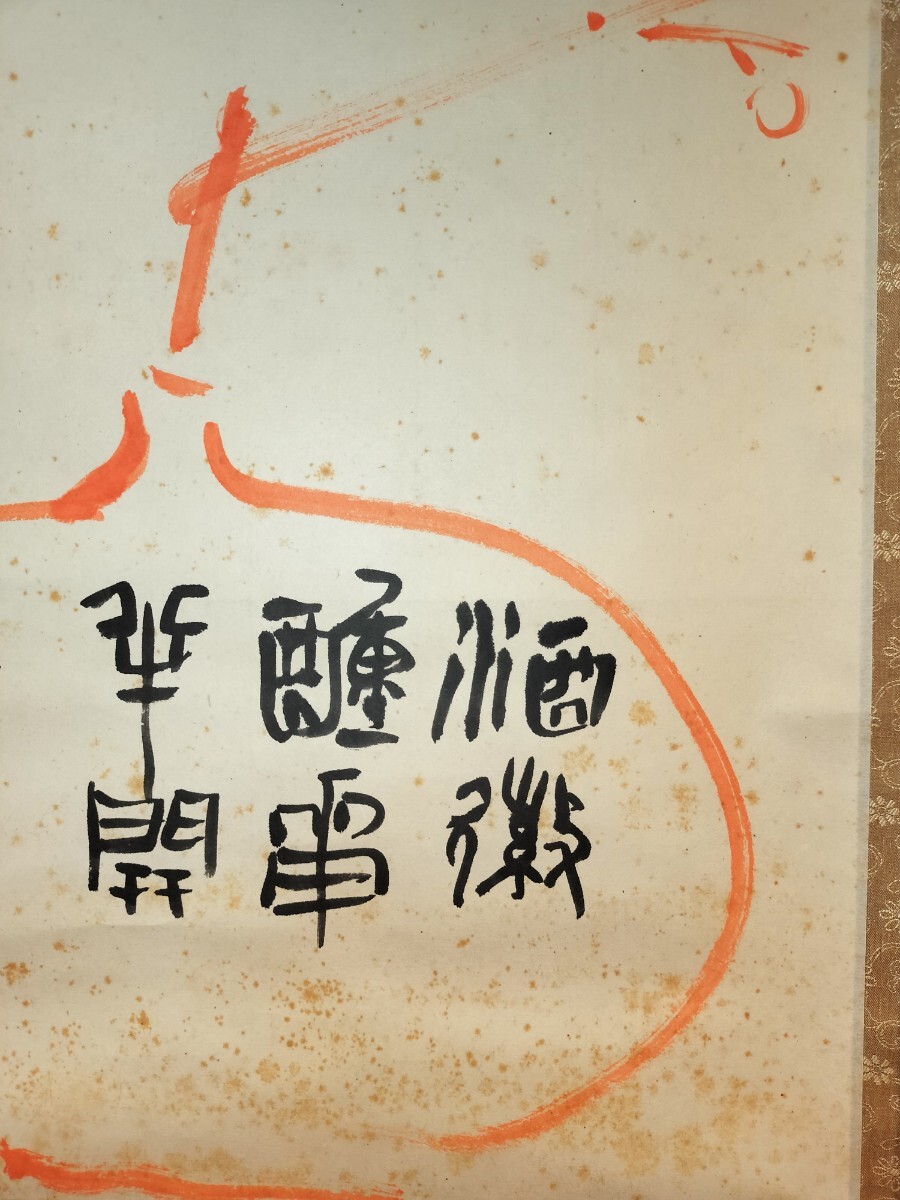 酒微
醺
半開